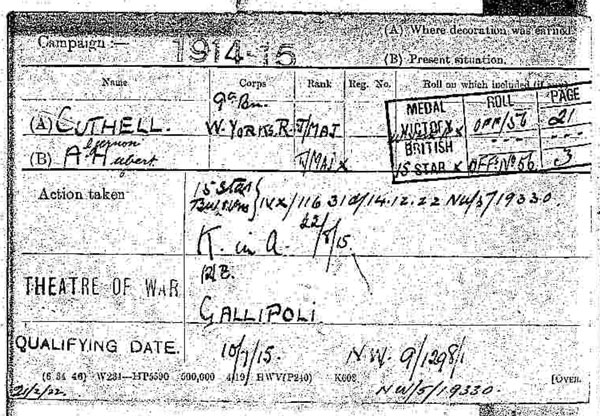 (A) Where decoration was earned.
Campaign :— 1914-15
(B) Present situation.
Name Corps Rank Reg. No. Roll on which included (if any)
9th Bn.
MEDAL ROLL PAGE
(A) CUTHELL. W. YORKS. R. T/MAJ
VICTORY X OFF/56 21
BRITISH
(B) Algernon Hubert T/MAJ X
15 STAR X OFF. No 56 3
Action taken
15 Star IVX/116 31 d/14.12.22 NW/5/19330
K. in A. 22/8/15.
THEATRE OF WAR
GALLIPOLI
QUALIFYING DATE. 10/7/15. N.W. 9/1298/1
(6 34 46) W231—HP5590 500,000 4/19 HWV(P240) K608 [OVER.
21/2/22. NW/5/19330